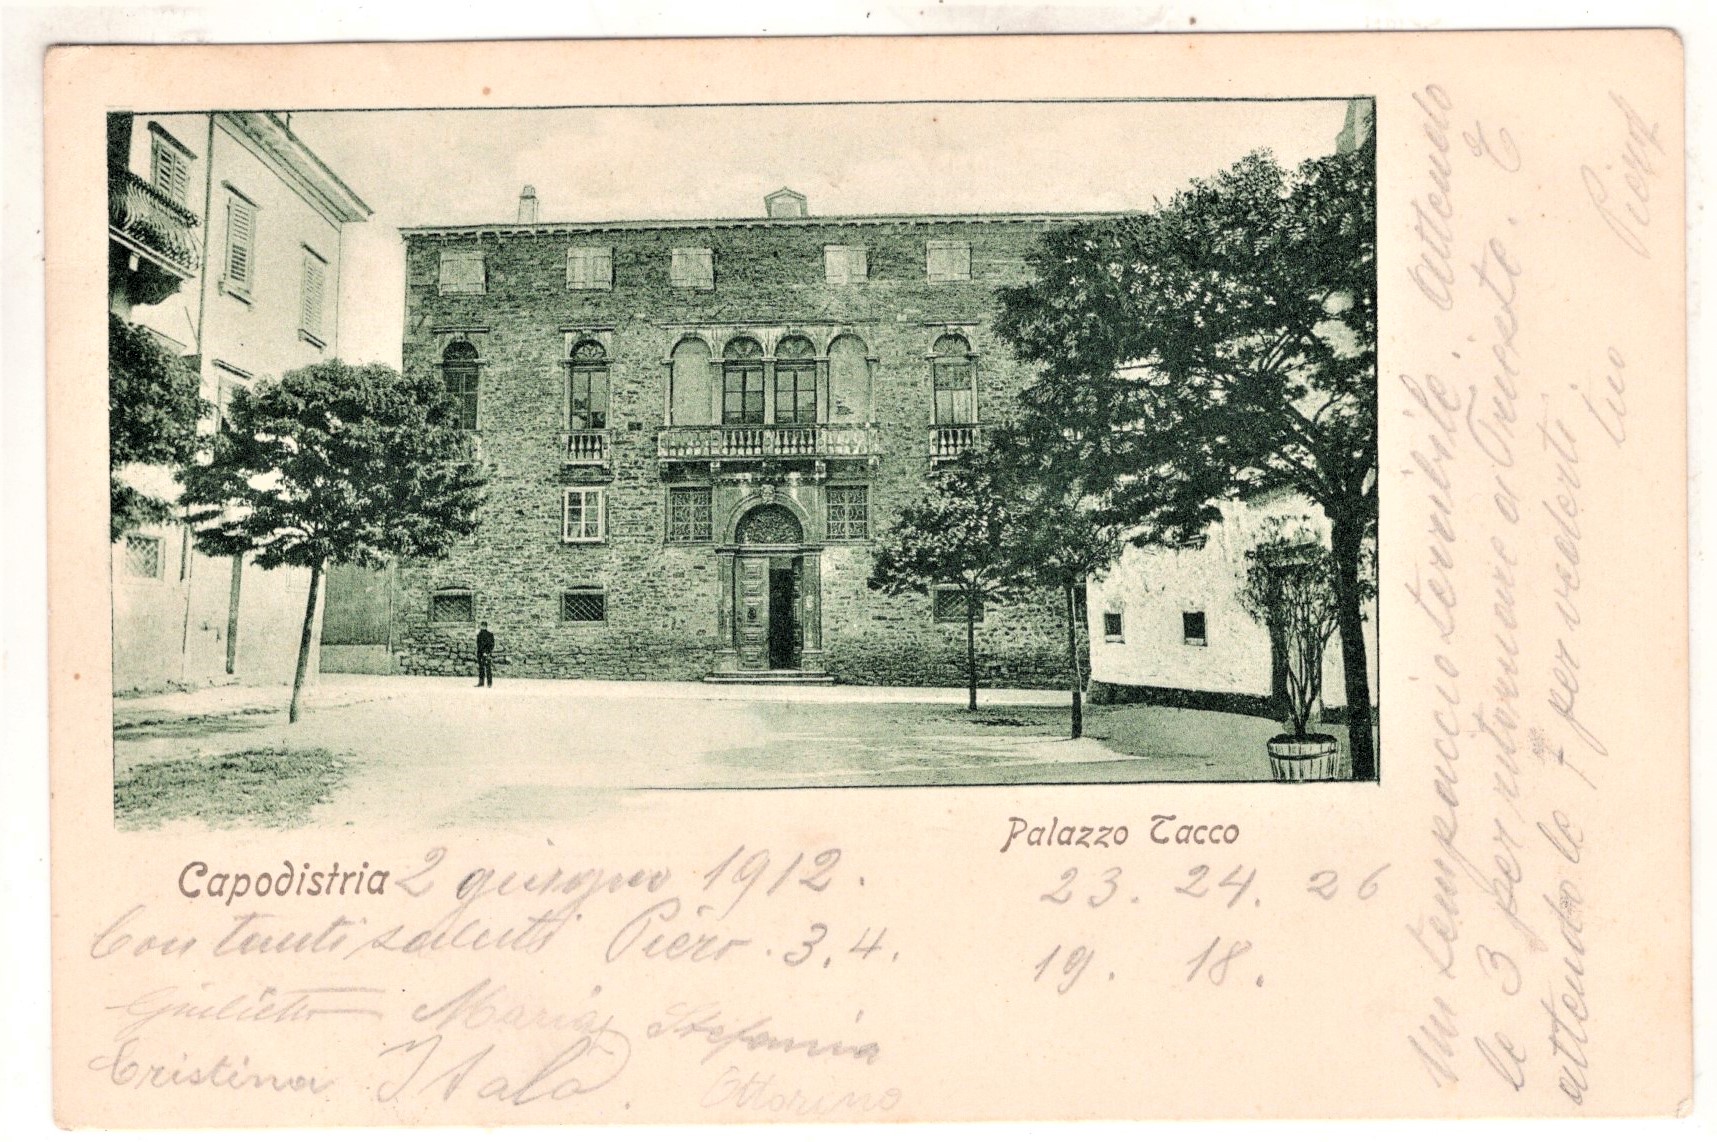 Palazzo Tacco
Capodistria 2 giugno 1912.
Con tanti saluti Piero. 3. 4.
Giulietta Maria Stefania
Cristina Italo.
Ottorino
23. 24. 26
19. 18.
Un tempaccio terribile. Attendo
le 3 per ritornare a Trieste. E
attendo le 7 per vederti
tuo Piero